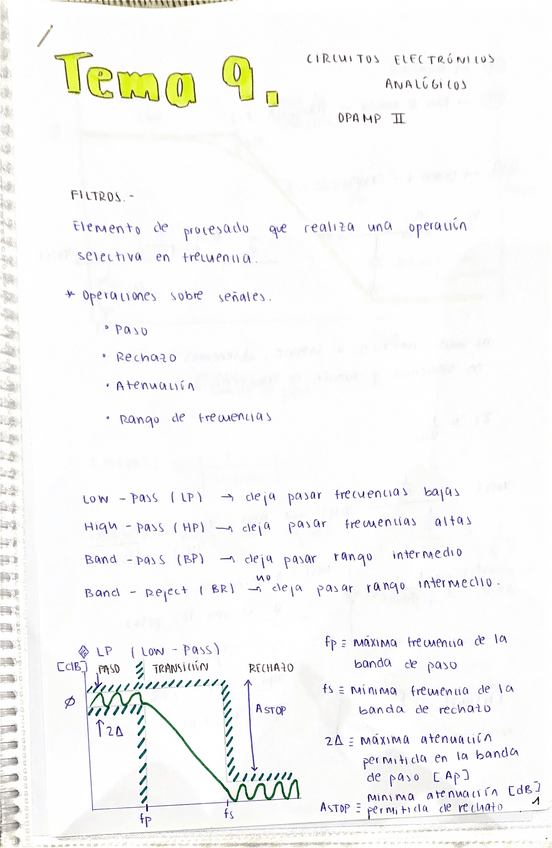 Tema 9.
CIRCUITOS ELECTRÓNICOS
ANALÓGICOS
OPAMP II
FILTROS.-
Elemento de procesado que realiza una operación
selectiva en frecuencia.
* Operaciones sobre señales.
• Paso
• Rechazo
• Atenuación
• Rango de frecuencias
Low - Pass (LP) → deja pasar frecuencias bajas
High - Pass (HP) → deja pasar frecuencias altas
Band - Pass (BP) → deja pasar rango intermedio
Band - Reject (BR) → no deja pasar rango intermedio.
LP (Low - Pass)
[dB] PASO TRANSICIÓN RECHAZO
Ø
2Δ
ASTOP
fp
fs
fp ≡ máxima frecuencia de la
banda de paso
fs ≡ mínima frecuencia de la
banda de rechazo
2Δ ≡ máxima atenuación
permitida en la banda
de paso [Ap]
ASTOP ≡ mínima atenuación [dB]
permitida de rechazo
1